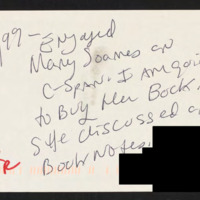 /99 - Enjoyed
Mary Soames on
C-SPAN. I am goi
to Buy Her Book.
She discussed o
Book Notes.